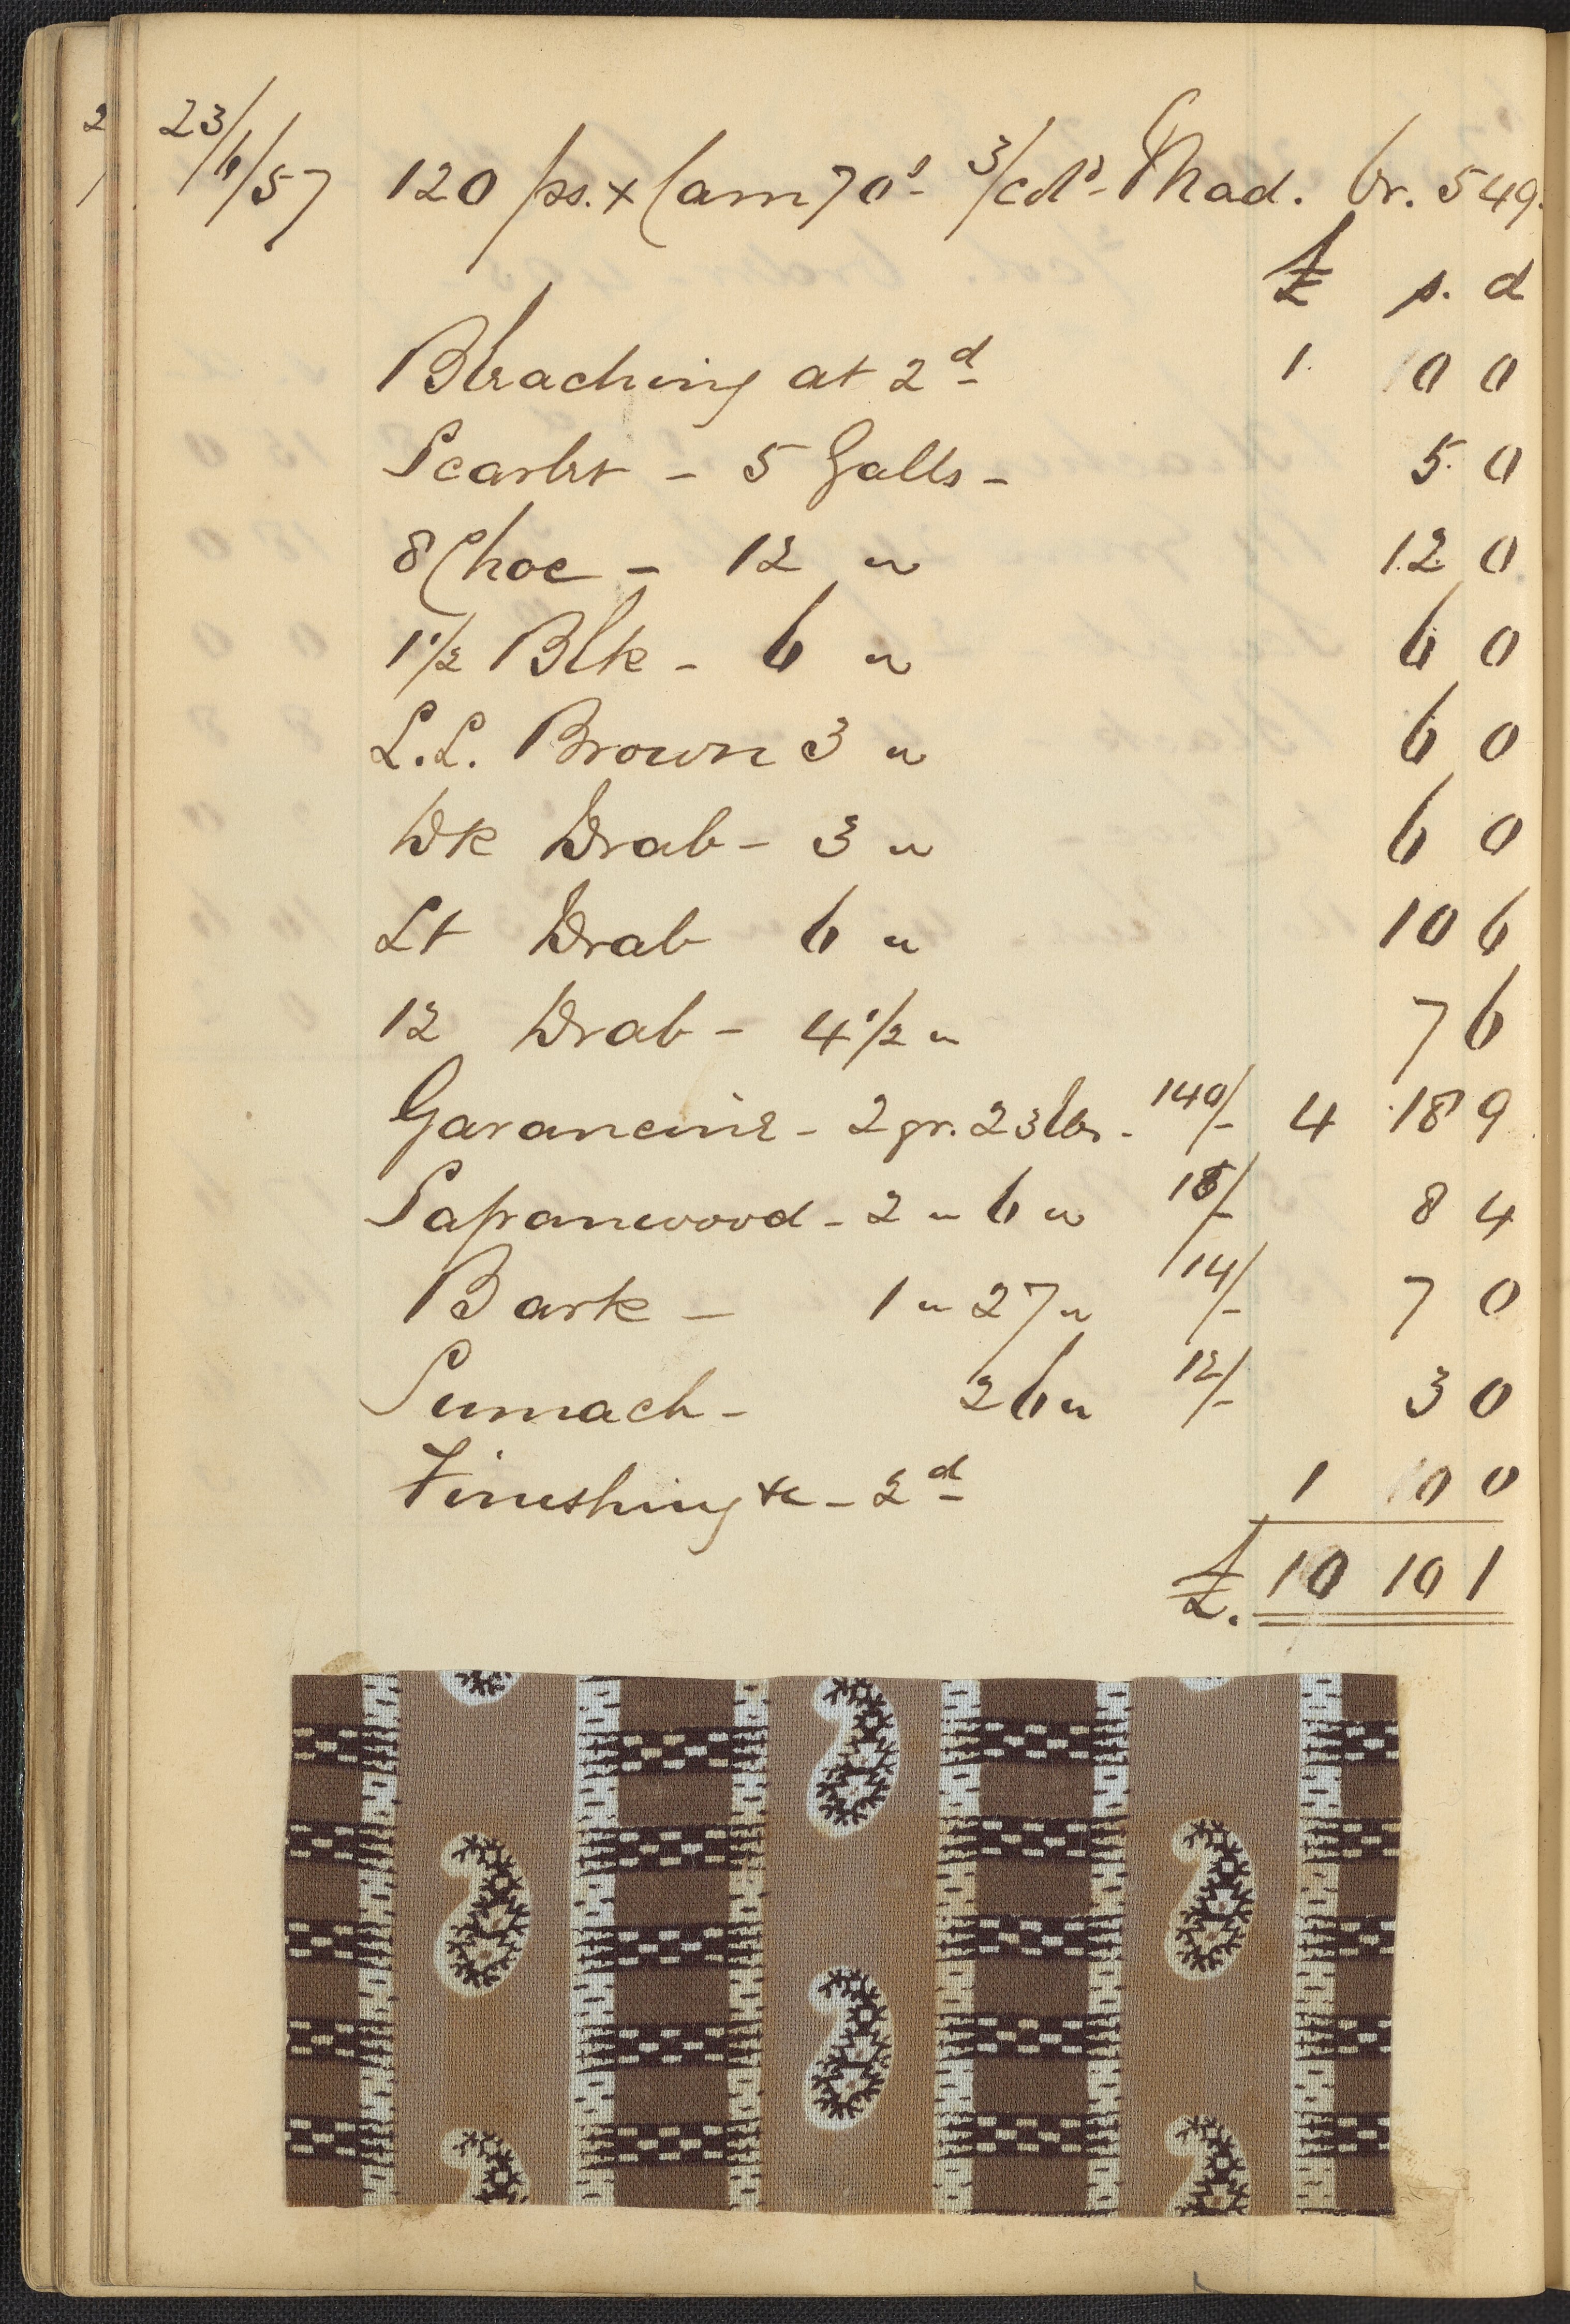 2 23/6/57 120 ps. x Cam 70s 3/cd Mad. br. 549.
£ s. d
Bleaching at 2d 1. 0 0
Scarlet - 5 Galls - 5. 0
8 Choc - 12 " 12 0
1 1/2 Blk - 6 " 6 0
L.L. Brown 3 " 6 0
Dk Drab - 3 " 6 0
Lt Drab 6 " 10 6
12 Drab - 4 1/2 " 7 6
Garancine - 2 qr. 23 lbs. 140/- 4 18 9
Sapanwood - 2 " 6 " 8 4
Bark - 1 " 27 " 14/- 7 0
Sumach - 26 " 12/- 3 0
Finishing &c - 2d 1 0 0
£. 10 10 1